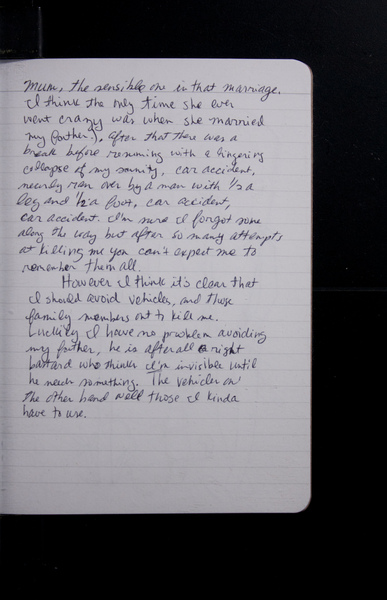 Mum, the sensible one in that marriage.
I think the only time she ever
went crazy was when she married
my father!), after that there was a
break before resuming with a lingering
collapse of my sanity, car accident,
nearly ran over by a man with 1/3 a
leg and 1/2 a foot, car accident,
car accident. I'm sure I forgot some
along the way but after so many attempts
at killing me you can't expect me to
remember them all.
However I think it's clear that
I should avoid vehicles, and those
family members out to kill me.
Luckily I have no problem avoiding
my father, he is after all a right
bastard who thinks I'm invisible until
he needs something. The vehicles on
the other hand well those I kinda
have to use.